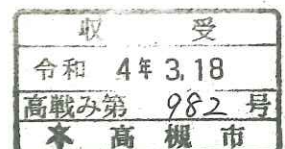 収 受
令和 4年 3.18
高戦み第 982 号
高槻市